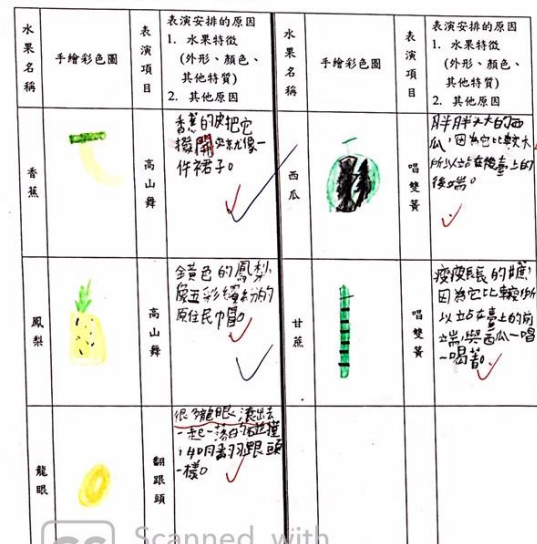 水果名稱
手繪彩色圖
表演項目
表演安排的原因
1. 水果特徵
(外形、顏色、
其他特質)
2. 其他原因
水果名稱
手繪彩色圖
表演項目
表演安排的原因
1. 水果特徵
(外形、顏色、
其他特質)
2. 其他原因
香蕉
高山舞
香蕉的皮把它
撥開來就像一
件裙子。
西瓜
唱雙簧
胖胖大大的西
瓜,因為它比較大
所以站在後臺上的
後端。
鳳梨
高山舞
黃色的鳳梨,
像五彩繽紛的
原住民巾帽。
甘蔗
唱雙簧
瘦瘦長長的
因為它比較
以站在臺上的前
端,與西瓜一唱
一喝著。
龍眼
翻跟頭
很多龍眼滾出去
一起一落的碰撞
跟頭
一樣。
Scanned with